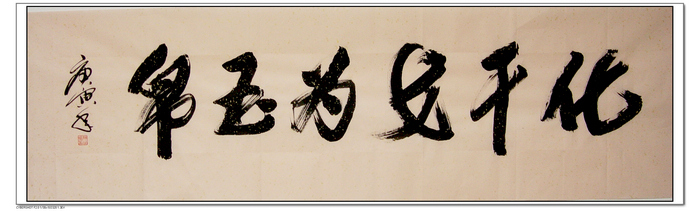 化干戈为玉帛
庚寅年